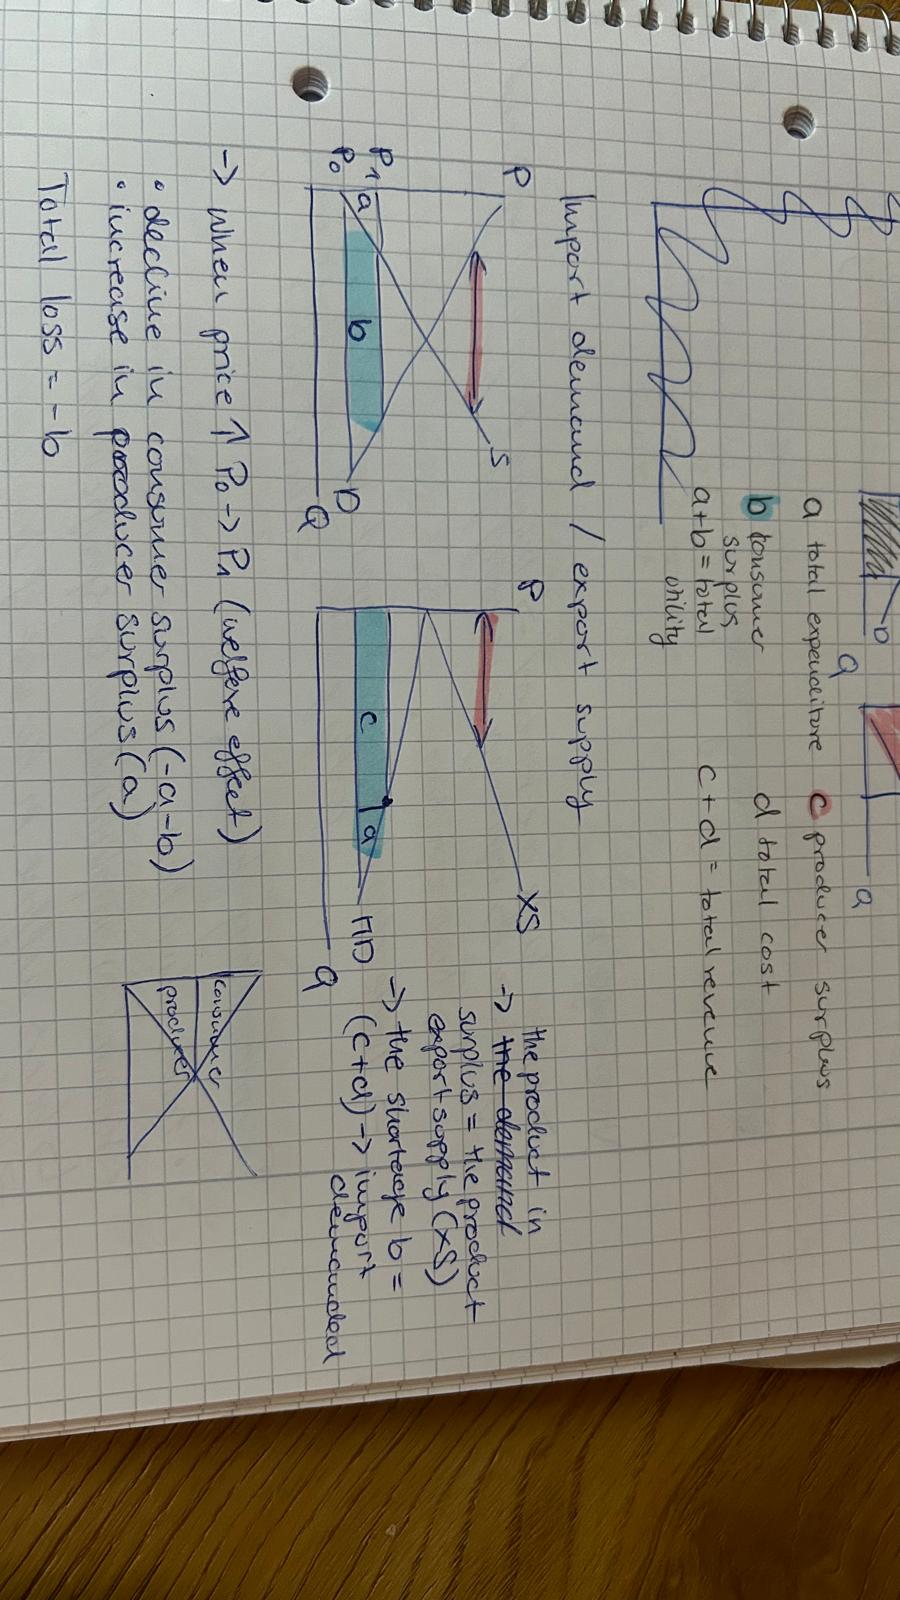 D
Q
a
a total expenditure
c producer surplus
b consumer
surplus
d total cost
a+b = total
utility
c+d = total revenue
Import demand / export supply
P
P1
P0
a
b
S
D
Q
P
c
d
XS
MD
Q
the product in
-> the demand
surplus = the product
export supply (XS)
-> the shortage b =
(c+d) -> import
demanded
-> when price ↑ P0 -> P1 (welfare effect)
• decline in consumer surplus (-a-b)
• increase in producer surplus (a)
Total loss = -b
consumer
producer